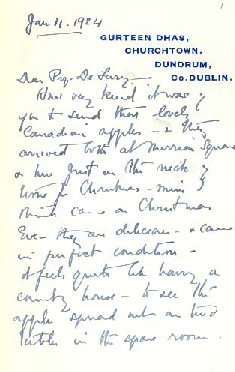 Jan 11. 1924
GURTEEN DHAS,
CHURCHTOWN,
DUNDRUM,
Co. DUBLIN.
How very kind it was of
you to send those lovely
Canadian apples - & they
arrived both at Merrion Square
& here just in the neck of
time for Christmas - mine I
think came on Christmas
Eve - they are delicious - & came
in perfect condition -
it feels quite like having a
country house - to see the
apples spread out on two
tables in the spare room.